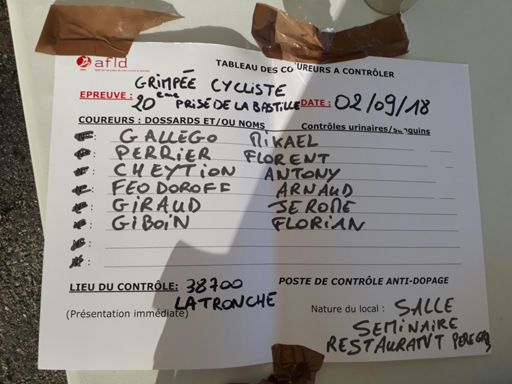 afld
TABLEAU DES COUREURS A CONTRÔLER
GRIMPÉE CYCLISTE
EPREUVE : 20ème PRISE DE LA BASTILLE DATE : 02/09/18
COUREURS : DOSSARDS ET/OU NOMS Contrôles urinaires/sanguins
GALLEGO MIKAEL
PERRIER FLORENT
CHEYTION ANTONY
FEODOROFF ARNAUD
GIRAUD JEROME
GIBOIN FLORIAN
LIEU DU CONTRÔLE: 38700 POSTE DE CONTRÔLE ANTI-DOPAGE
LA TRONCHE
(Présentation immédiate) Nature du local : SALLE
SEMINAIRE
RESTAURATVT